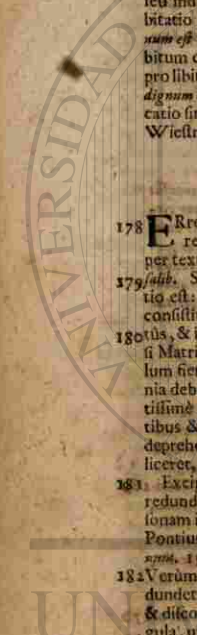 leu ind
bitatio
num est
bitum c
pro libit
dignum
catio sit
Wiestn
178 ERro
re
per tex
179 salib. S
tio est:
consisti
180 tûs, & i
si Matri
lum fier
nia deb
tissimè
tibus &
deprehe
liceret,
181 Excip
redund
sonam i
Pontius
num. 1
182 Verùm
dundet
& disco
gula, u
UNIVERSIDAD
UN